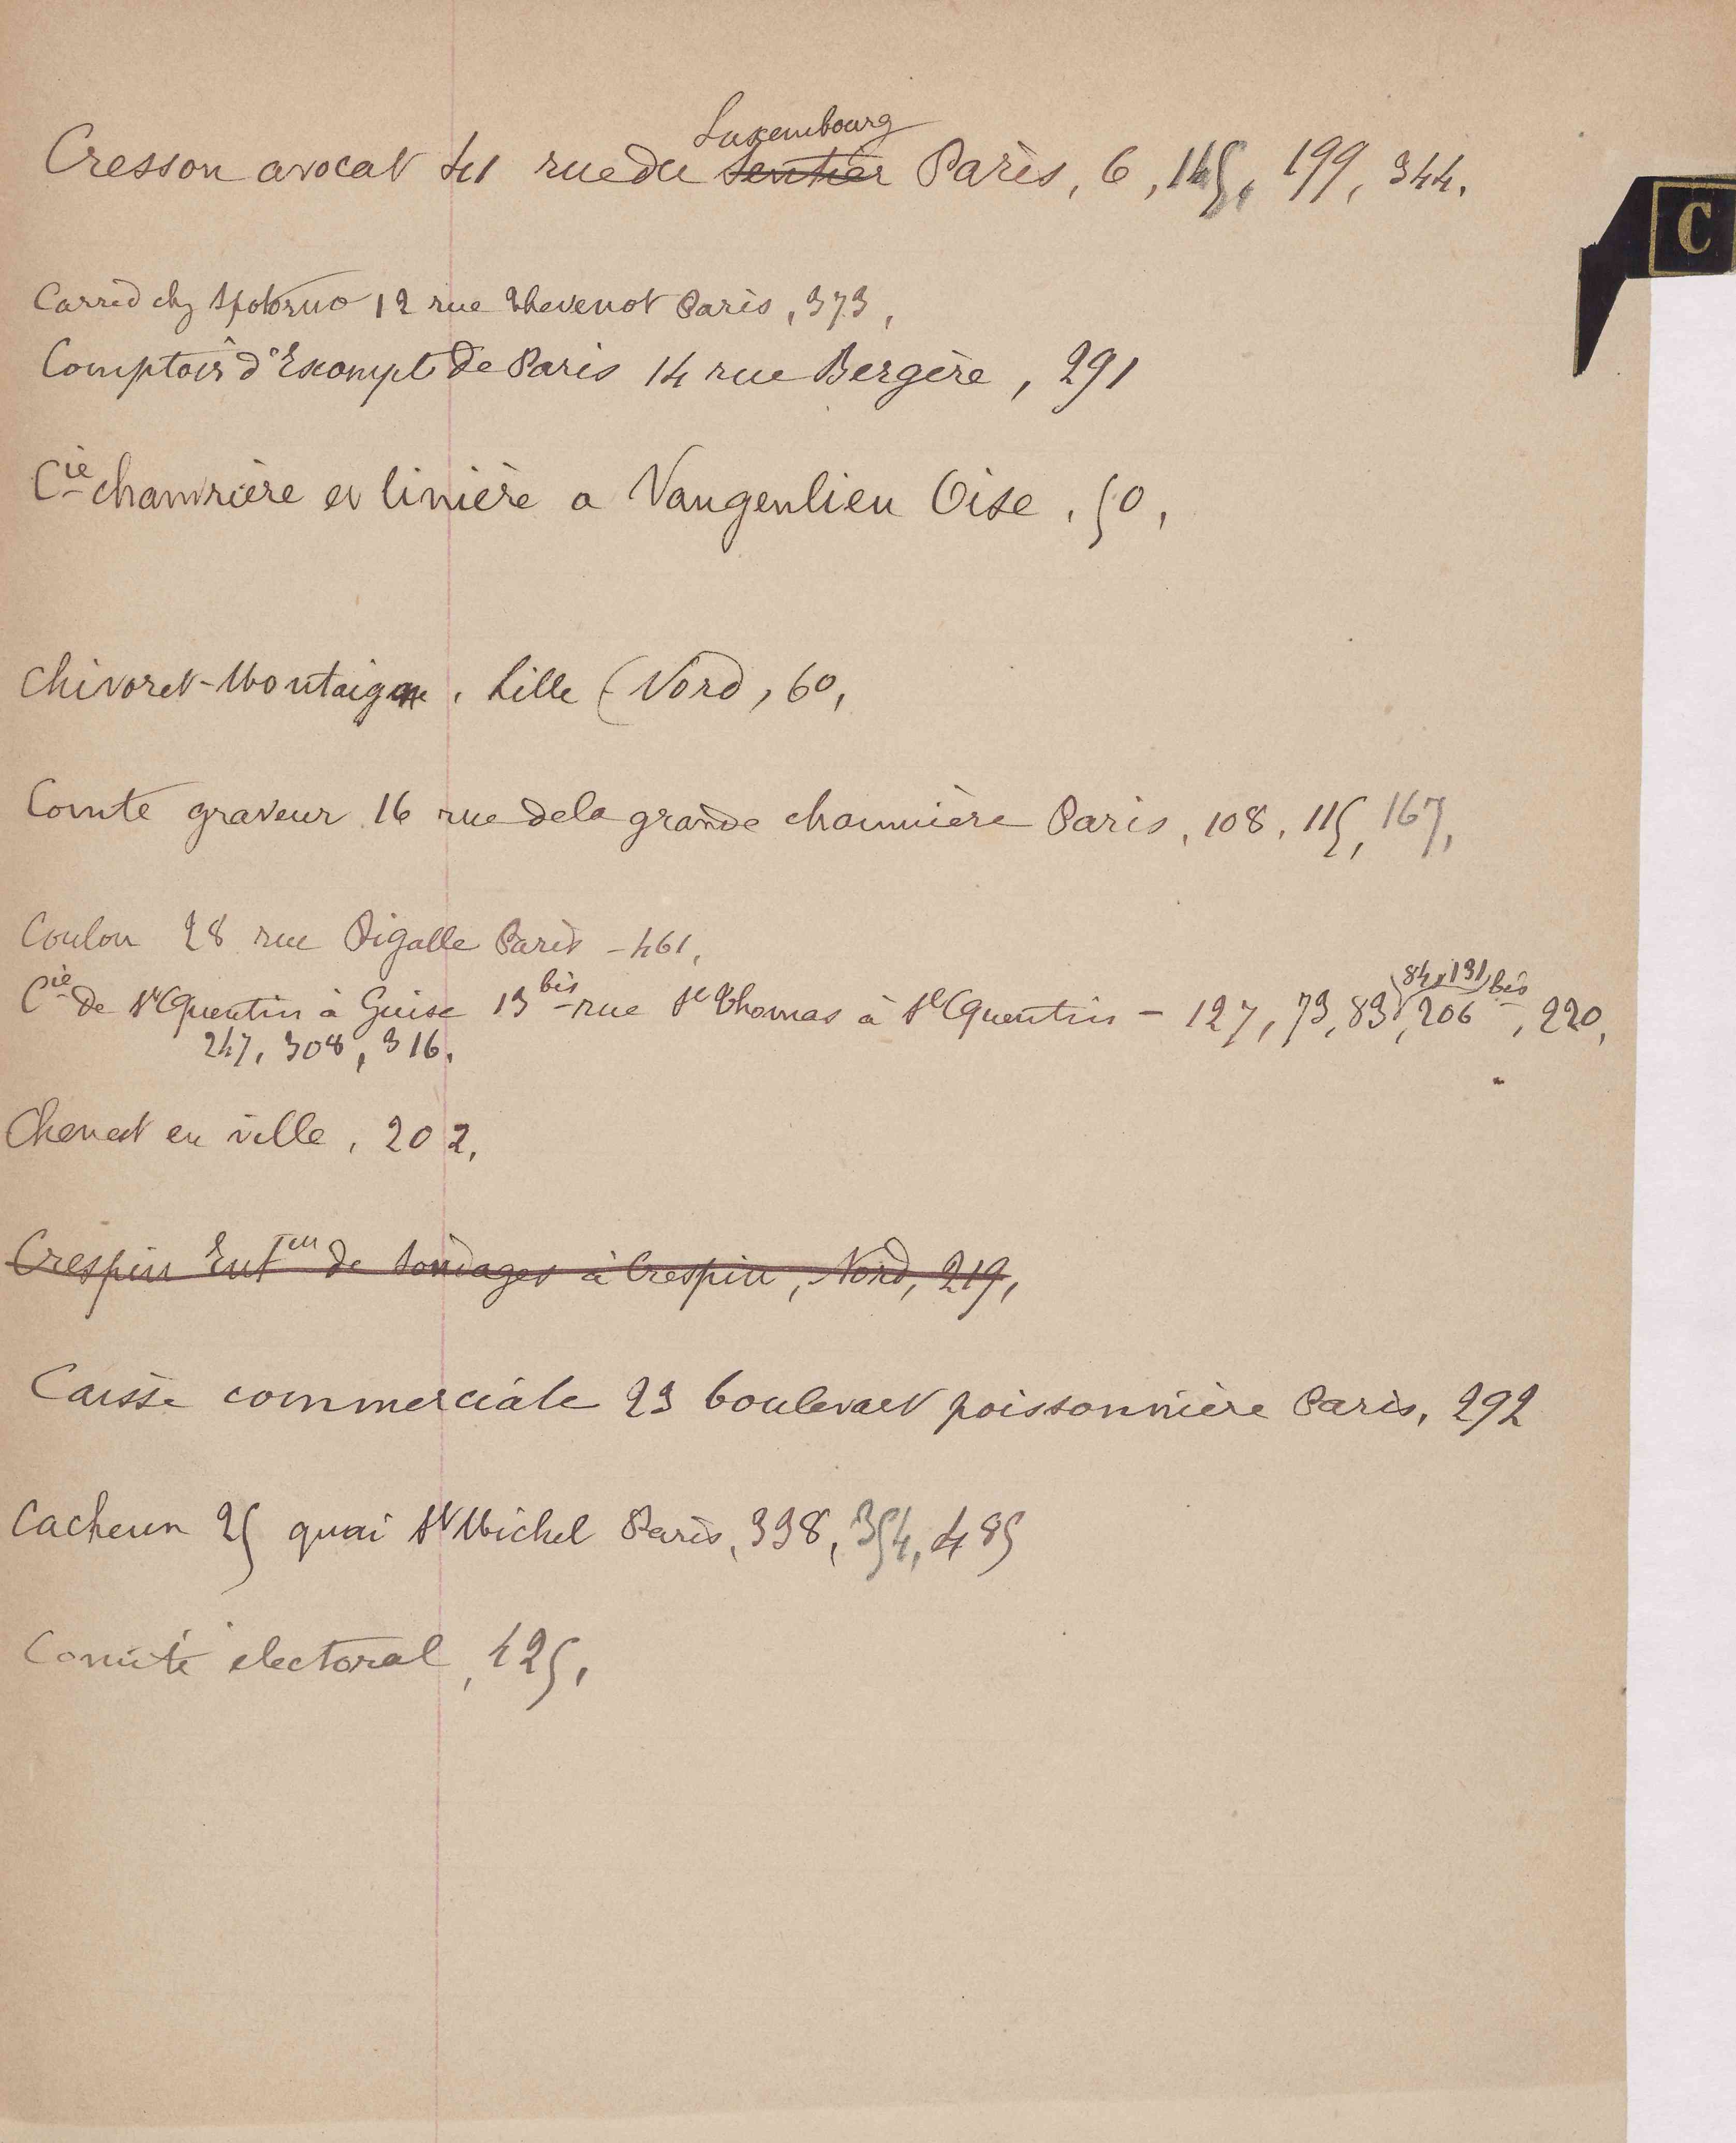 Luxembourg
Cresson avocat 41 rue du Sentier Paris, 6, 145, 199, 344.
C
Carred chz Spotorno 12 rue Thevenot Paris, 373,
Comptoir d'Escompte de Paris 14 rue Bergère, 291
Cie chanvrière et linière a Vaugenlieu Oise, 50,
Chivoret-Montaigne, Lille (Nord, 60,
Comte graveur 16 rue de la grande chaumière Paris, 108, 115, 167,
Coulon 28 rue Pigalle Paris - 461,
84, 131, bis
Cie de St Quentin à Guise 13 bis rue St Thomas à St Quentin - 127, 73, 83, 206, 220,
247, 308, 316.
Chenest en ville, 202,
Crespin Entreur de Sondages à Crespin, Nord, 219,
Caisse commerciale 23 boulevart poissonnière Paris, 292
Cacheux 25 quai St Michel Paris, 338, 354, 485
Comité électoral, 425,